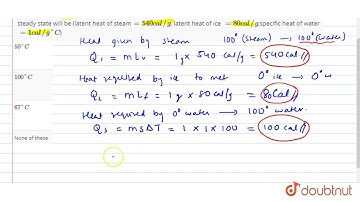 steady state will be (latent heat of steam = 540cal/g, latent heat of ice = 80cal/g,specific heat of water
= 1cal/g°C)
50°C
100°C
67°C
None of these
Heat given by steam 100° (steam) → 100° (water)
Q₁ = mLv = 1g × 540 cal/g = 540 cal//
Heat required by ice to met 0° ice → 0° w
Q₂ = mLf = 1 g × 80 cal/g = 80 cal//
Heat required by 0° water → 100° water.
Q₃ = msΔT = 1 × 1 × 100 = 100 cal//
doubtnut